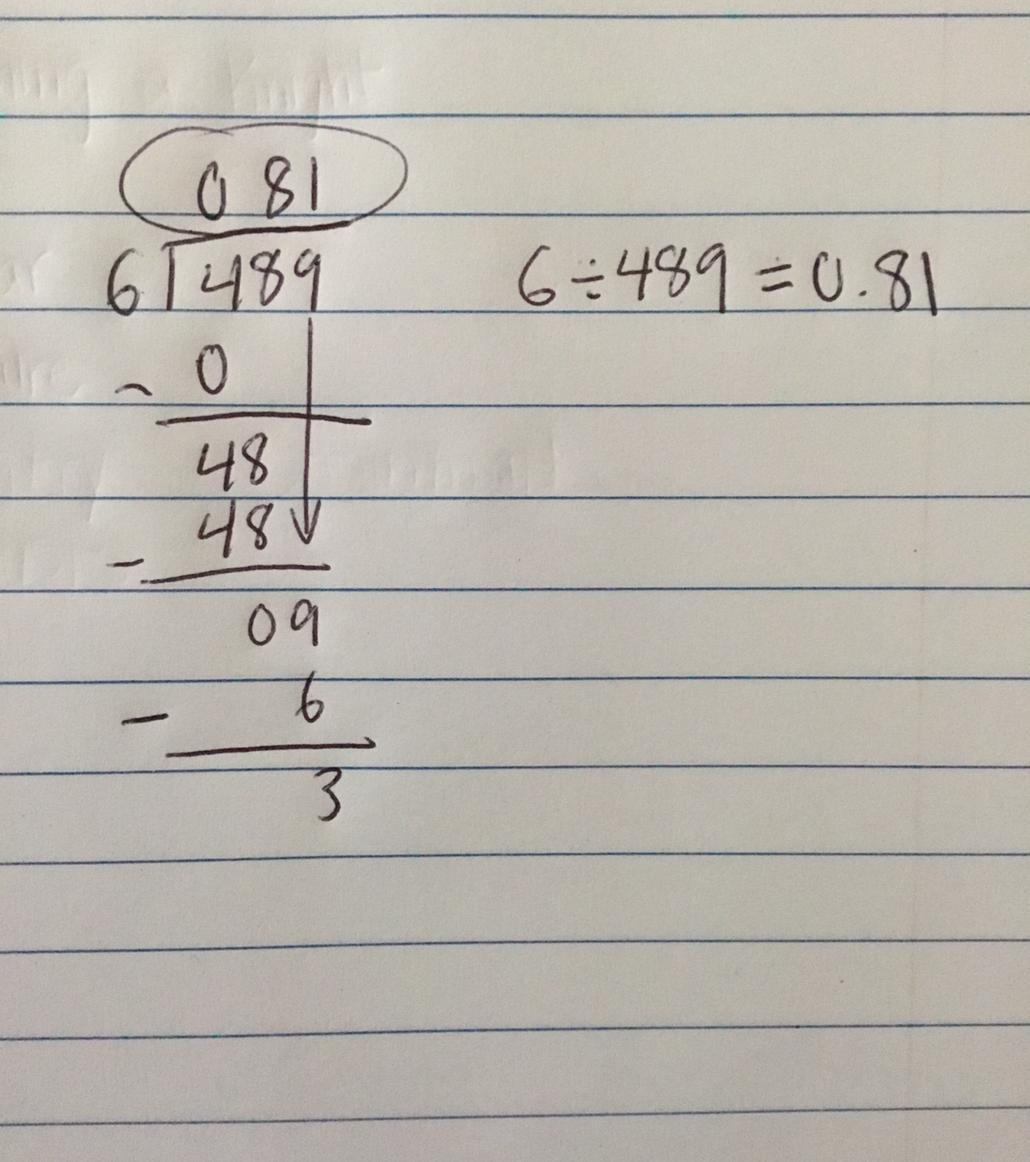 081
6⟌489 6÷489=0.81
- 0
48
- 48
09
- 6
3